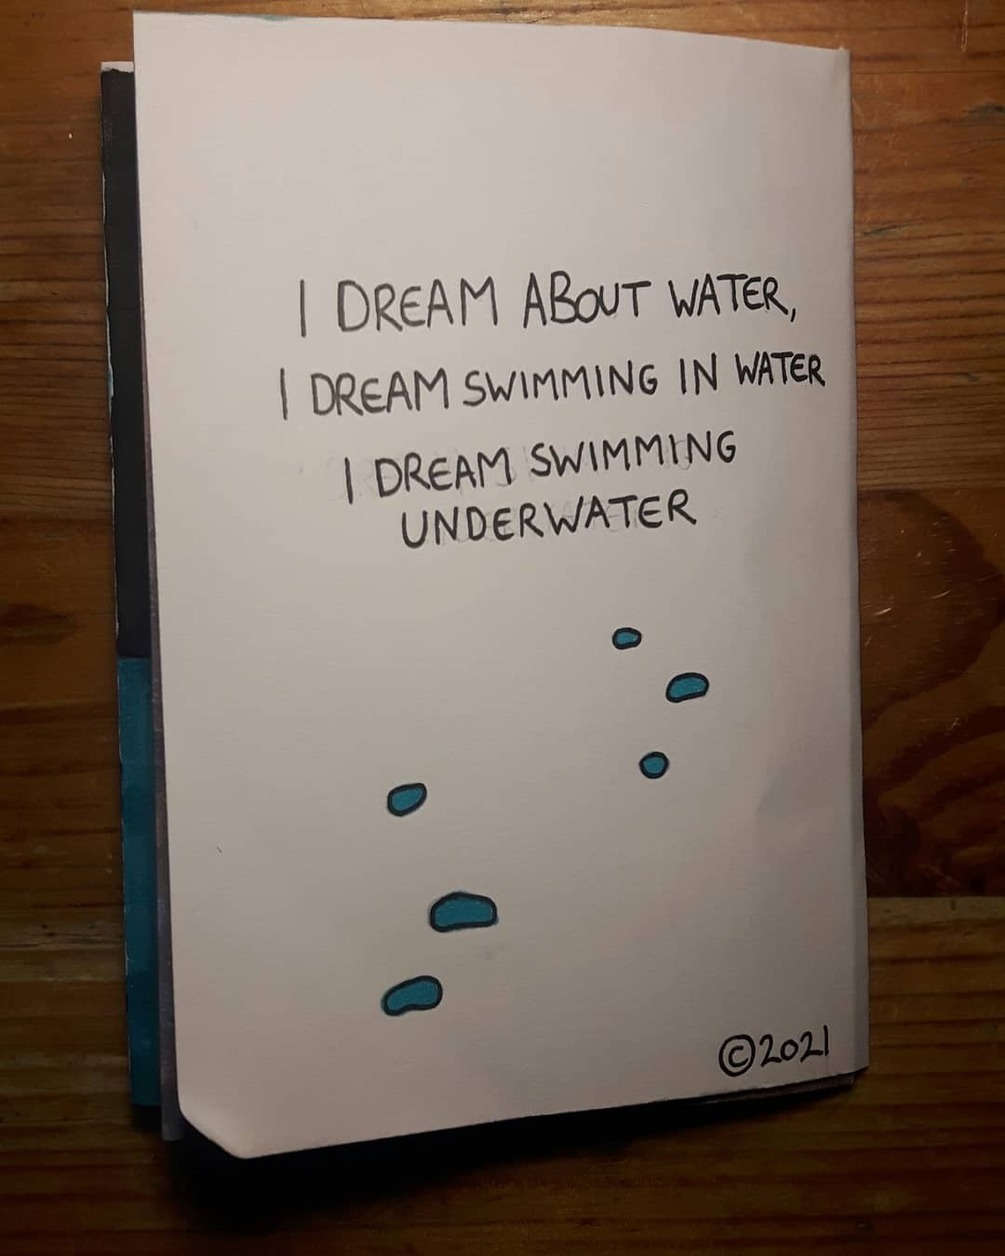 I DREAM ABOUT WATER,
I DREAM SWIMMING IN WATER
I DREAM SWIMMING
UNDERWATER
©2021